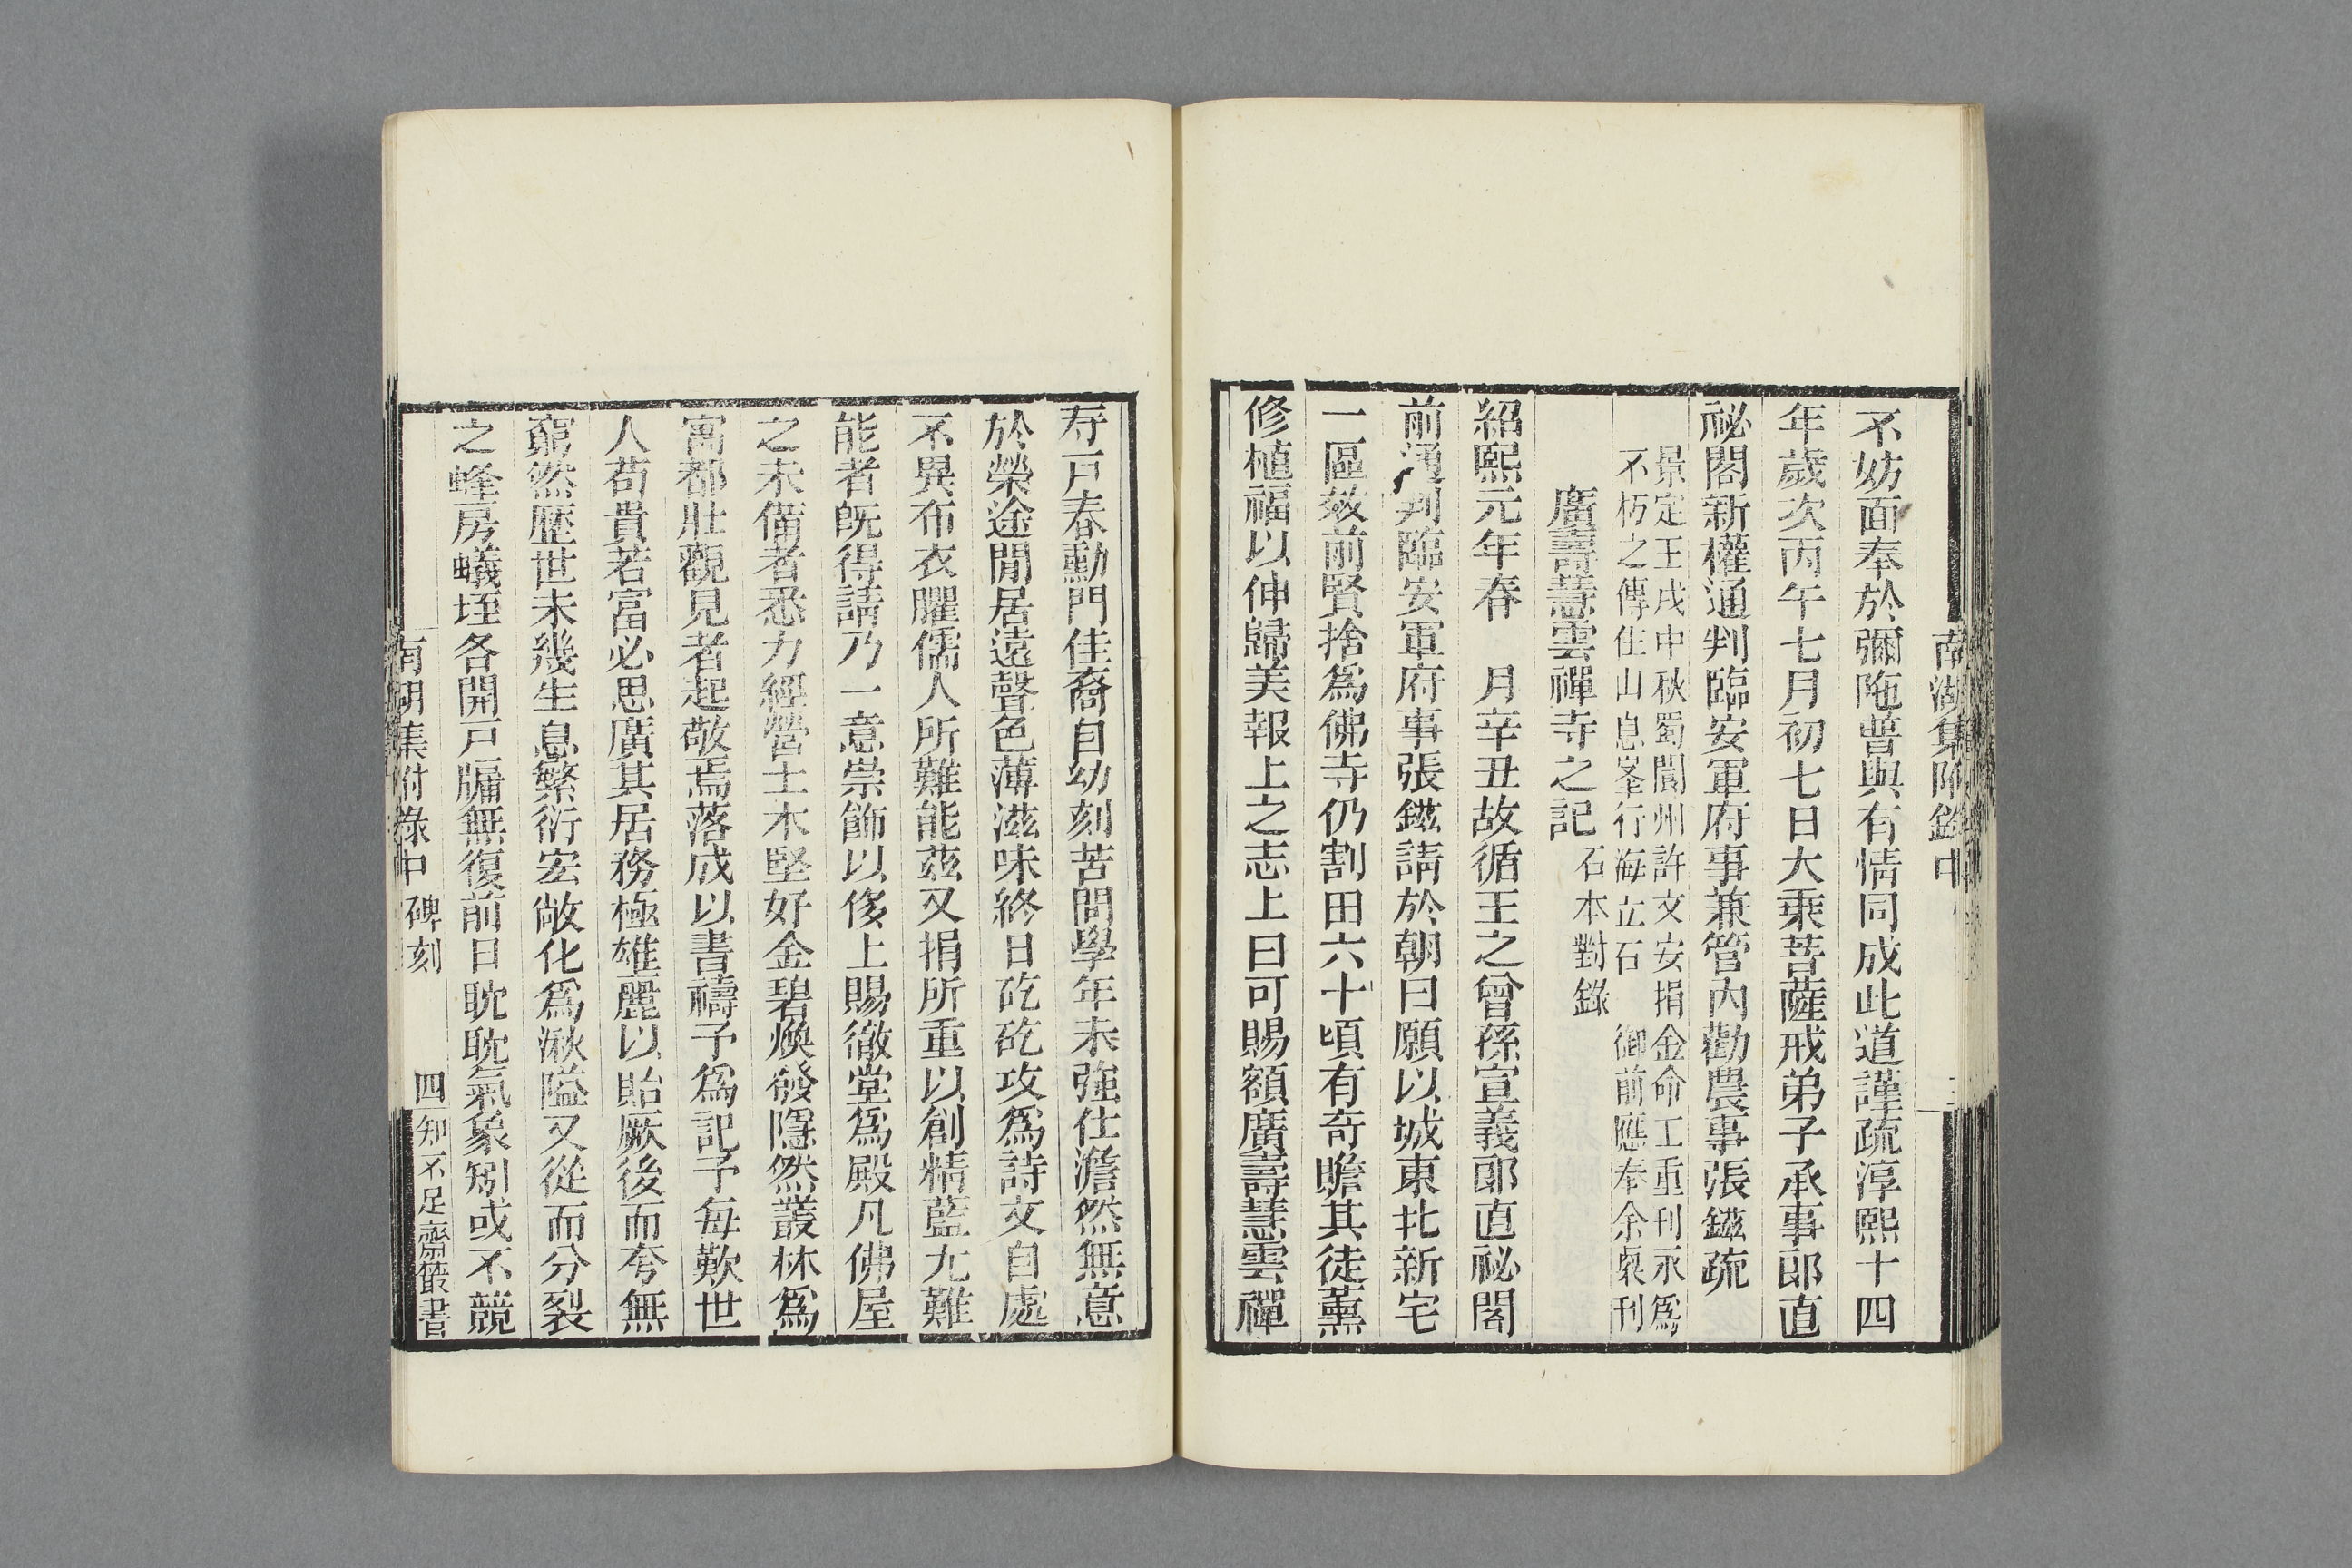 不妨面奉於彌陁普與有情同成此道謹疏淳熙十四
年歲次丙午七月初七日大乘菩薩戒弟子承事郎直
祕閣新權通判臨安軍府事兼管內勸農事張鎡疏
景定壬戌中秋蜀閬州許文安捐金命工重刊永爲
不朽之傳住山息峯行海立石　御前應奉余㮚刊
廣壽慧雲禪寺之記石本對錄
紹熙元年春　月辛丑故循王之曾孫宣義郎直祕閣
前通判臨安軍府事張鎡請於朝曰願以城東北新宅
一區效前賢捨爲佛寺仍割田六十頃有奇贍其徒薰
修植福以伸歸美報上之志上曰可賜額廣壽慧雲禪
寺戸春勳門佳裔自幼刻苦問學年未強仕澹然無意
於榮途閒居遠聲色薄滋味終日矻矻攻爲詩文自處
不異布衣臞儒人所難能茲又捐所重以創精藍尤難
能者旣得請乃一意崇飾以侈上賜徹堂爲殿凡佛屋
之未備者悉力經營土木堅好金碧煥發隱然叢林爲
寓都壯觀見者起敬焉落成以書禱予爲記予每歎世
人苟貴若富必思廣其居務極雄麗以貽厥後而夸無
窮然歷世未幾生息繁衍宏敞化爲湫隘又從而分裂
之蜂房蟻垤各開戸牖無復前日耽耽氣象矧或不競
南湖集附錄中　碑刻　四　知不足齋叢書